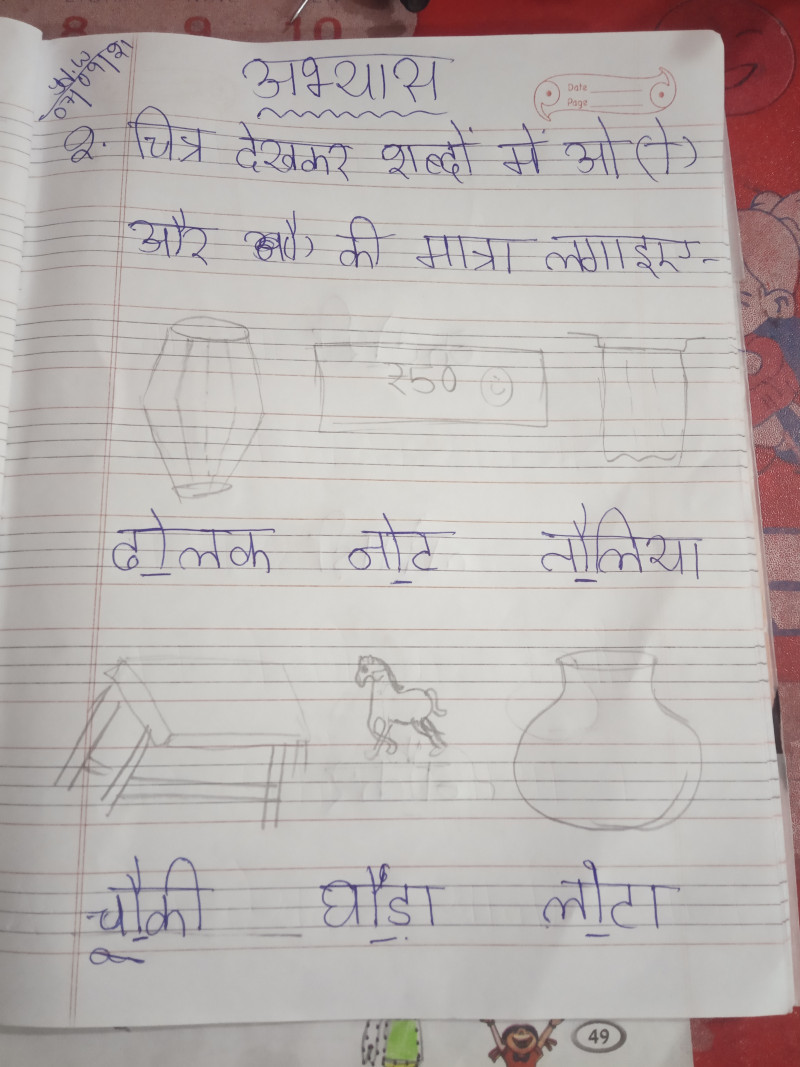 8 9 10
H.W
07/09/21
अभ्यास
Date
Page
2. चित्र देखकर शब्दों में ओ (ो)
और (ौ) की मात्रा लगाइए-
२50
ढोलक नोट तौलिया
चौकी घोड़ा लोटा
49